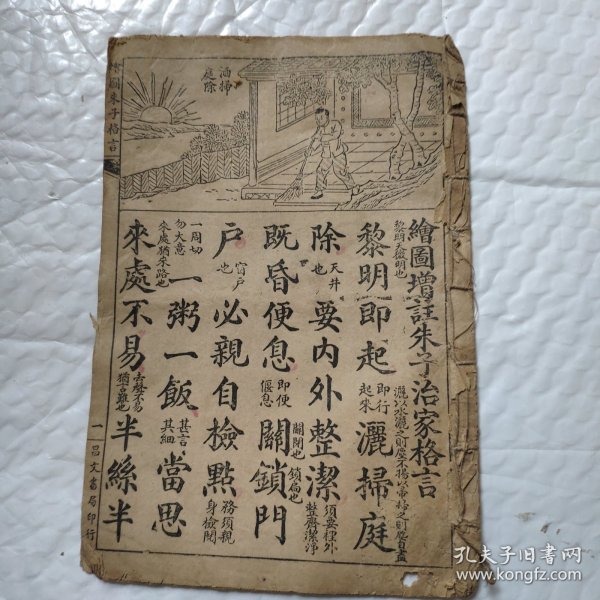 洒掃
庭除
繪圖朱子格言
繪圖增註朱子治家格言
黎明天微明也
黎明即起
即行
起來
灑掃庭
除
天井
也
要內外整潔
須要裡外
整齊潔淨
既昏便息
即便
偃息
關鎖門
關閉也
戶
窗戶
也
必親自檢點
務須親
身檢閱
一周切
勿大意
來處猶來路也
一粥一飯
甚言
其細
當思
來處不易
去聲不易
猶言難也
半絲半
一
昌文書局印行
孔夫子旧书网
www.kongfz.com